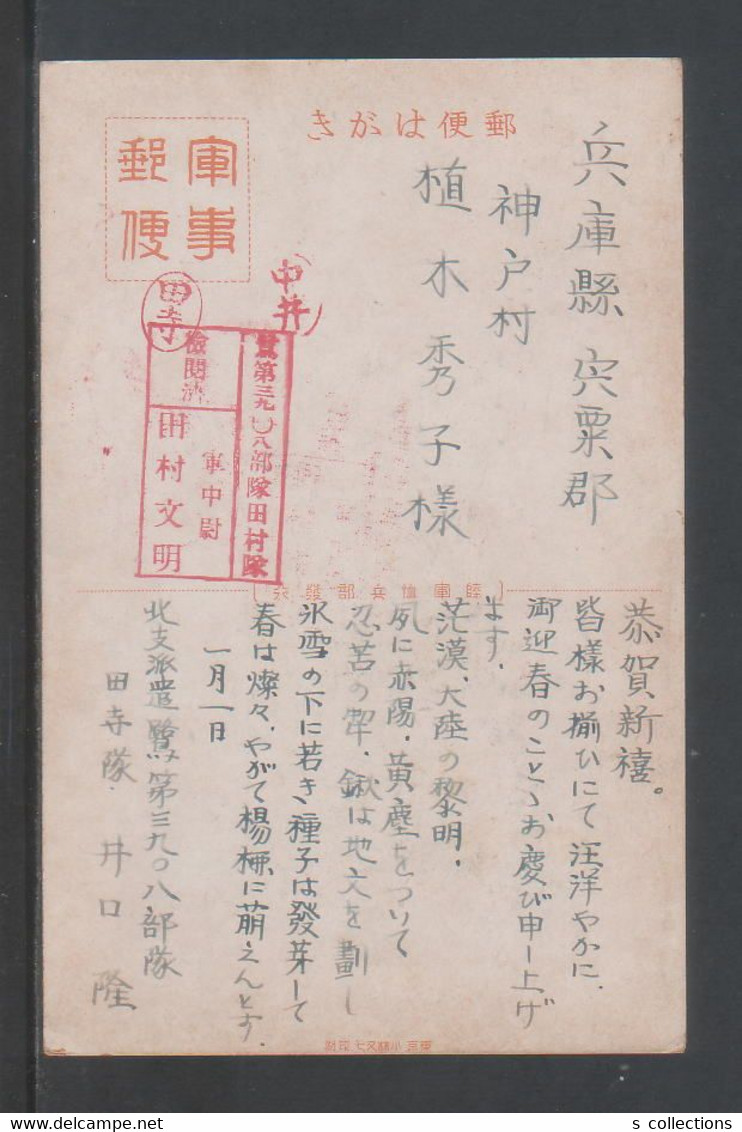 郵便はがき
軍事
郵便
兵庫縣宍粟郡
神戸村
植木秀子様
中井
田寺
鷺第三九〇八部隊田村隊
檢閲濟
軍中尉
田村文明
陸軍恤兵部發行
恭賀新禧。
皆様お揃ひにて汪洋やかに、
御迎春のことゝお慶び申し上げ
ます、
茫漠、大陸の黎明、
夙に赤陽、黄塵をついて
忍苦の犂、鍬は地文を劃し
氷雪の下に若き種子は發芽して
春は燦々、やがて楊柳に萠えんとす、
一月一日
北支派遣鷺第三九〇八部隊
田寺隊 井口 隆
東京 小林又七 印刷
s collections